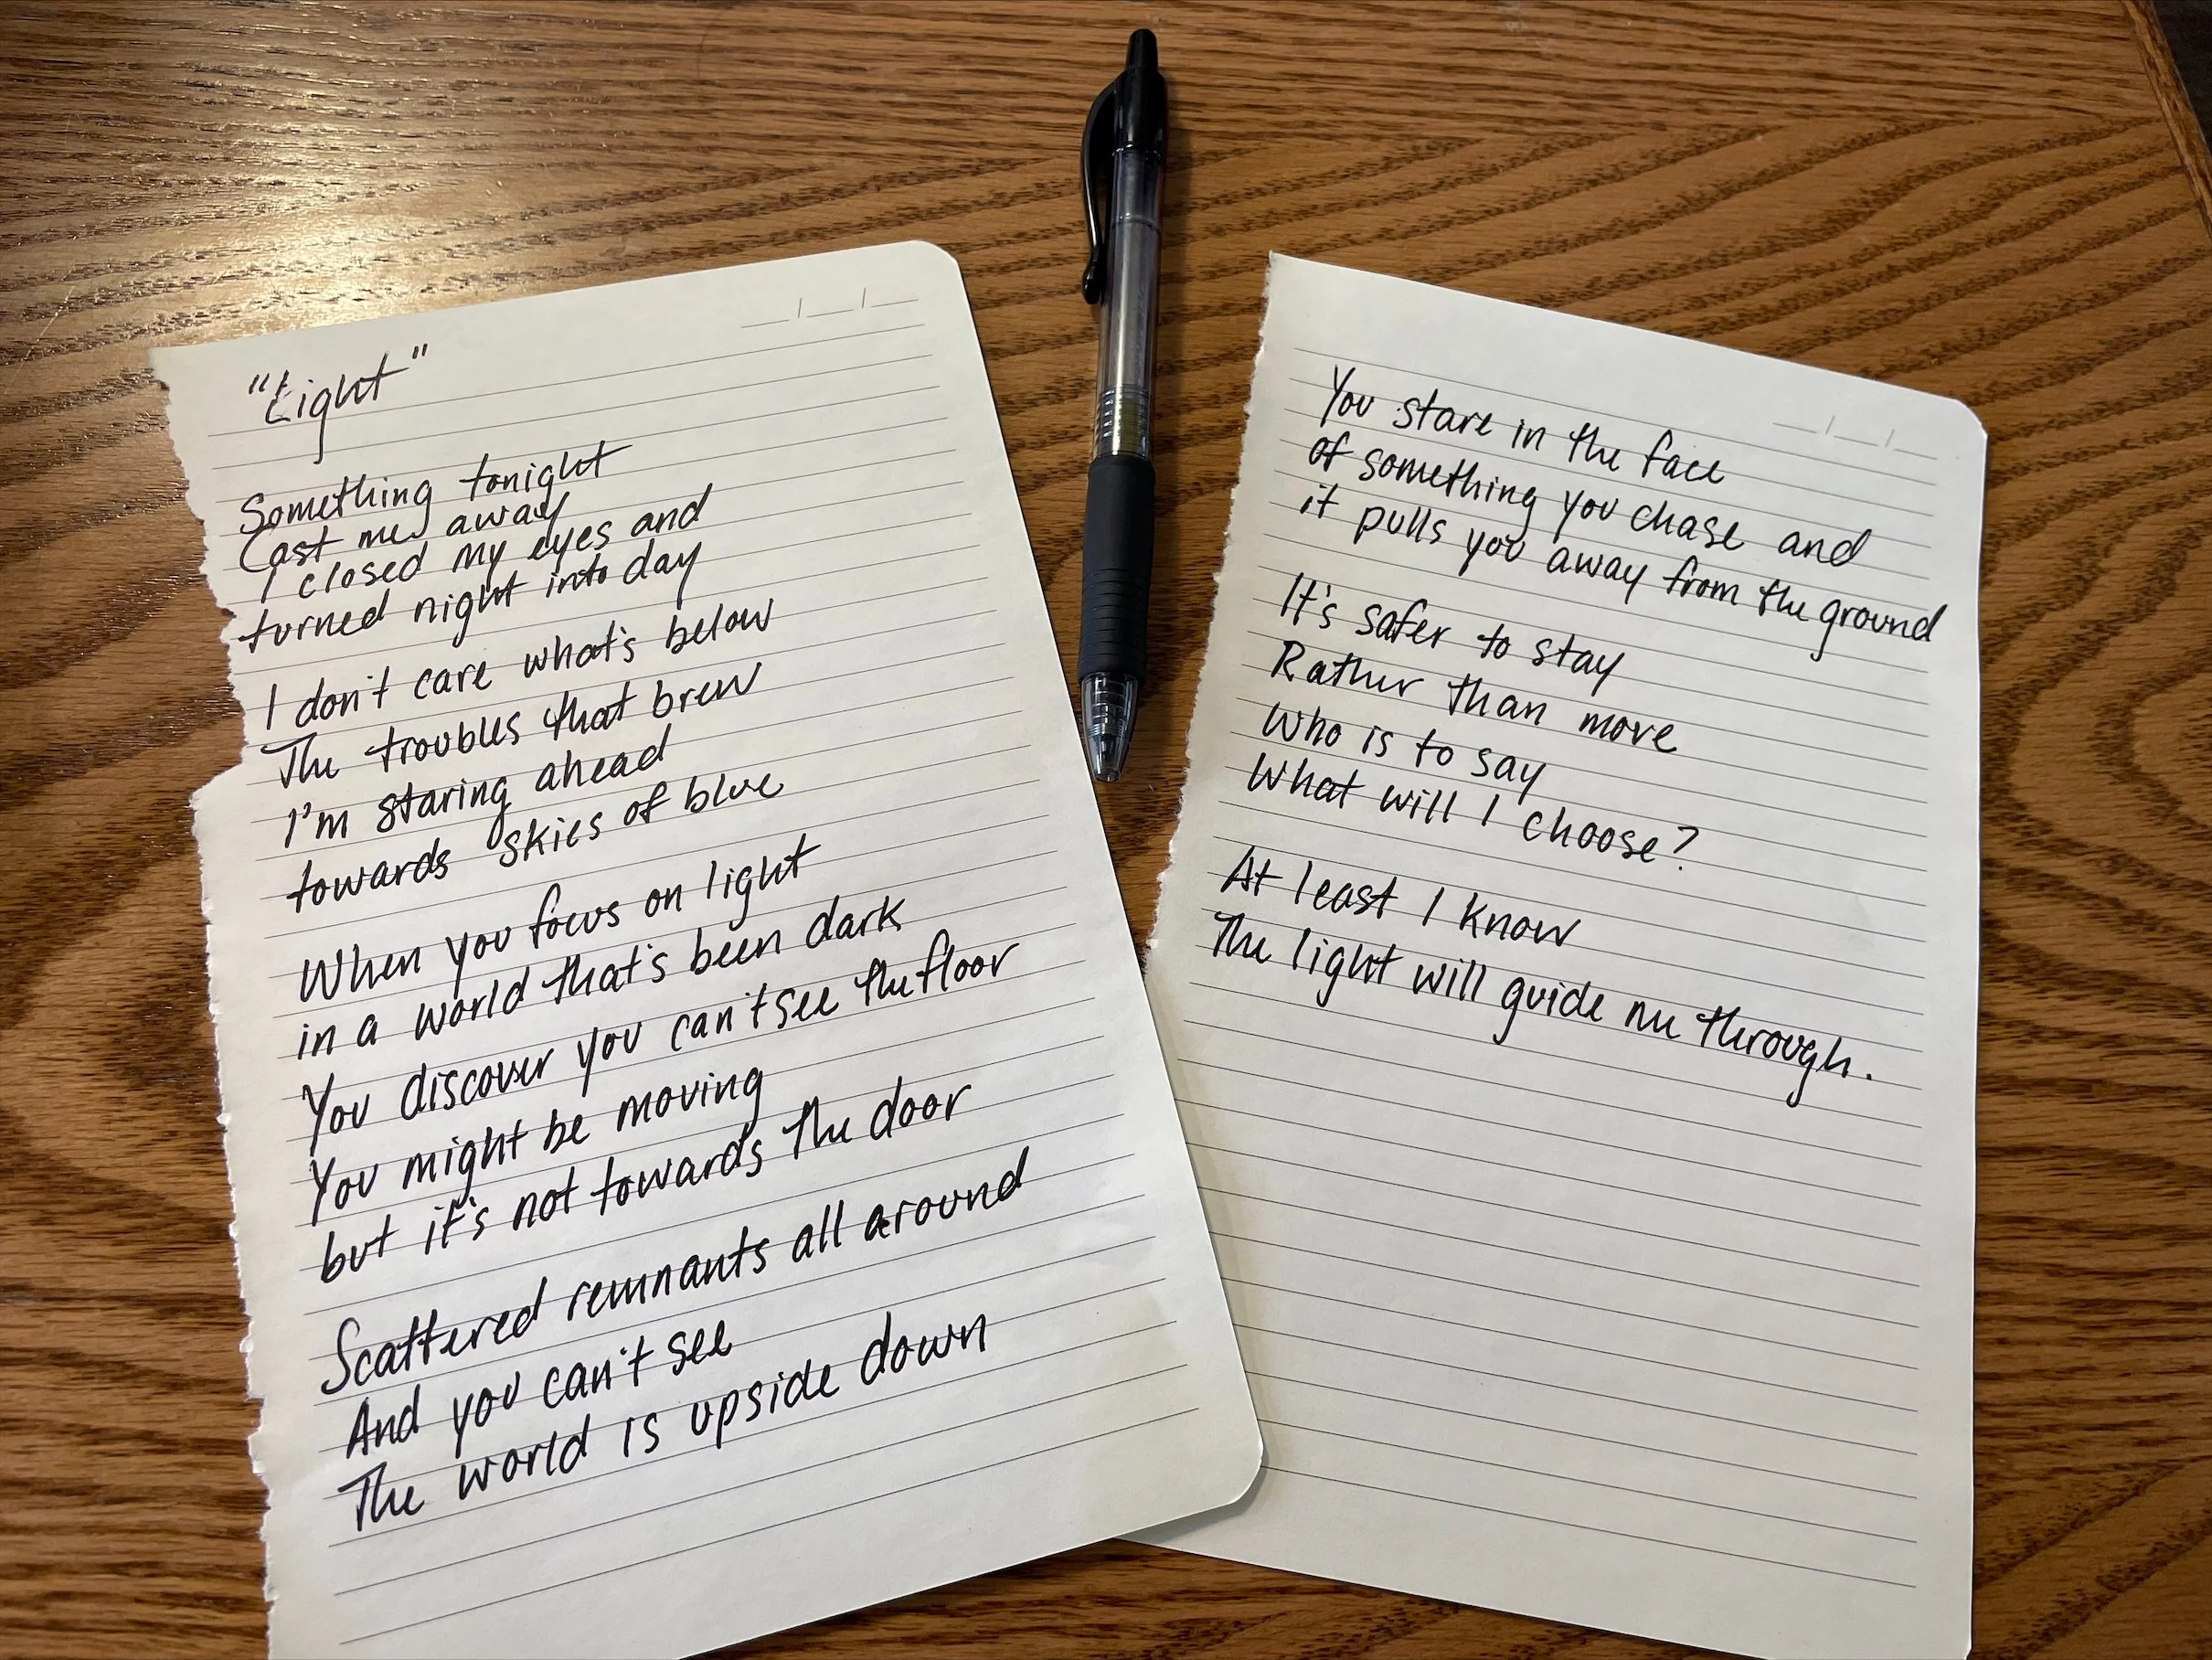 "Light"
Something tonight
Cast me away
I closed my eyes and
turned night into day
I don't care what's below
The troubles that brew
I'm staring ahead
towards skies of blue
When you focus on light
in a world that's been dark
You discover you can't see the floor
You might be moving
but it's not towards the door
Scattered remnants all around
And you can't see
The world is upside down
You stare in the face
of something you chase and
it pulls you away from the ground
It's safer to stay
Rather than move
Who is to say
What will I choose?
At least I know
The light will guide me through.